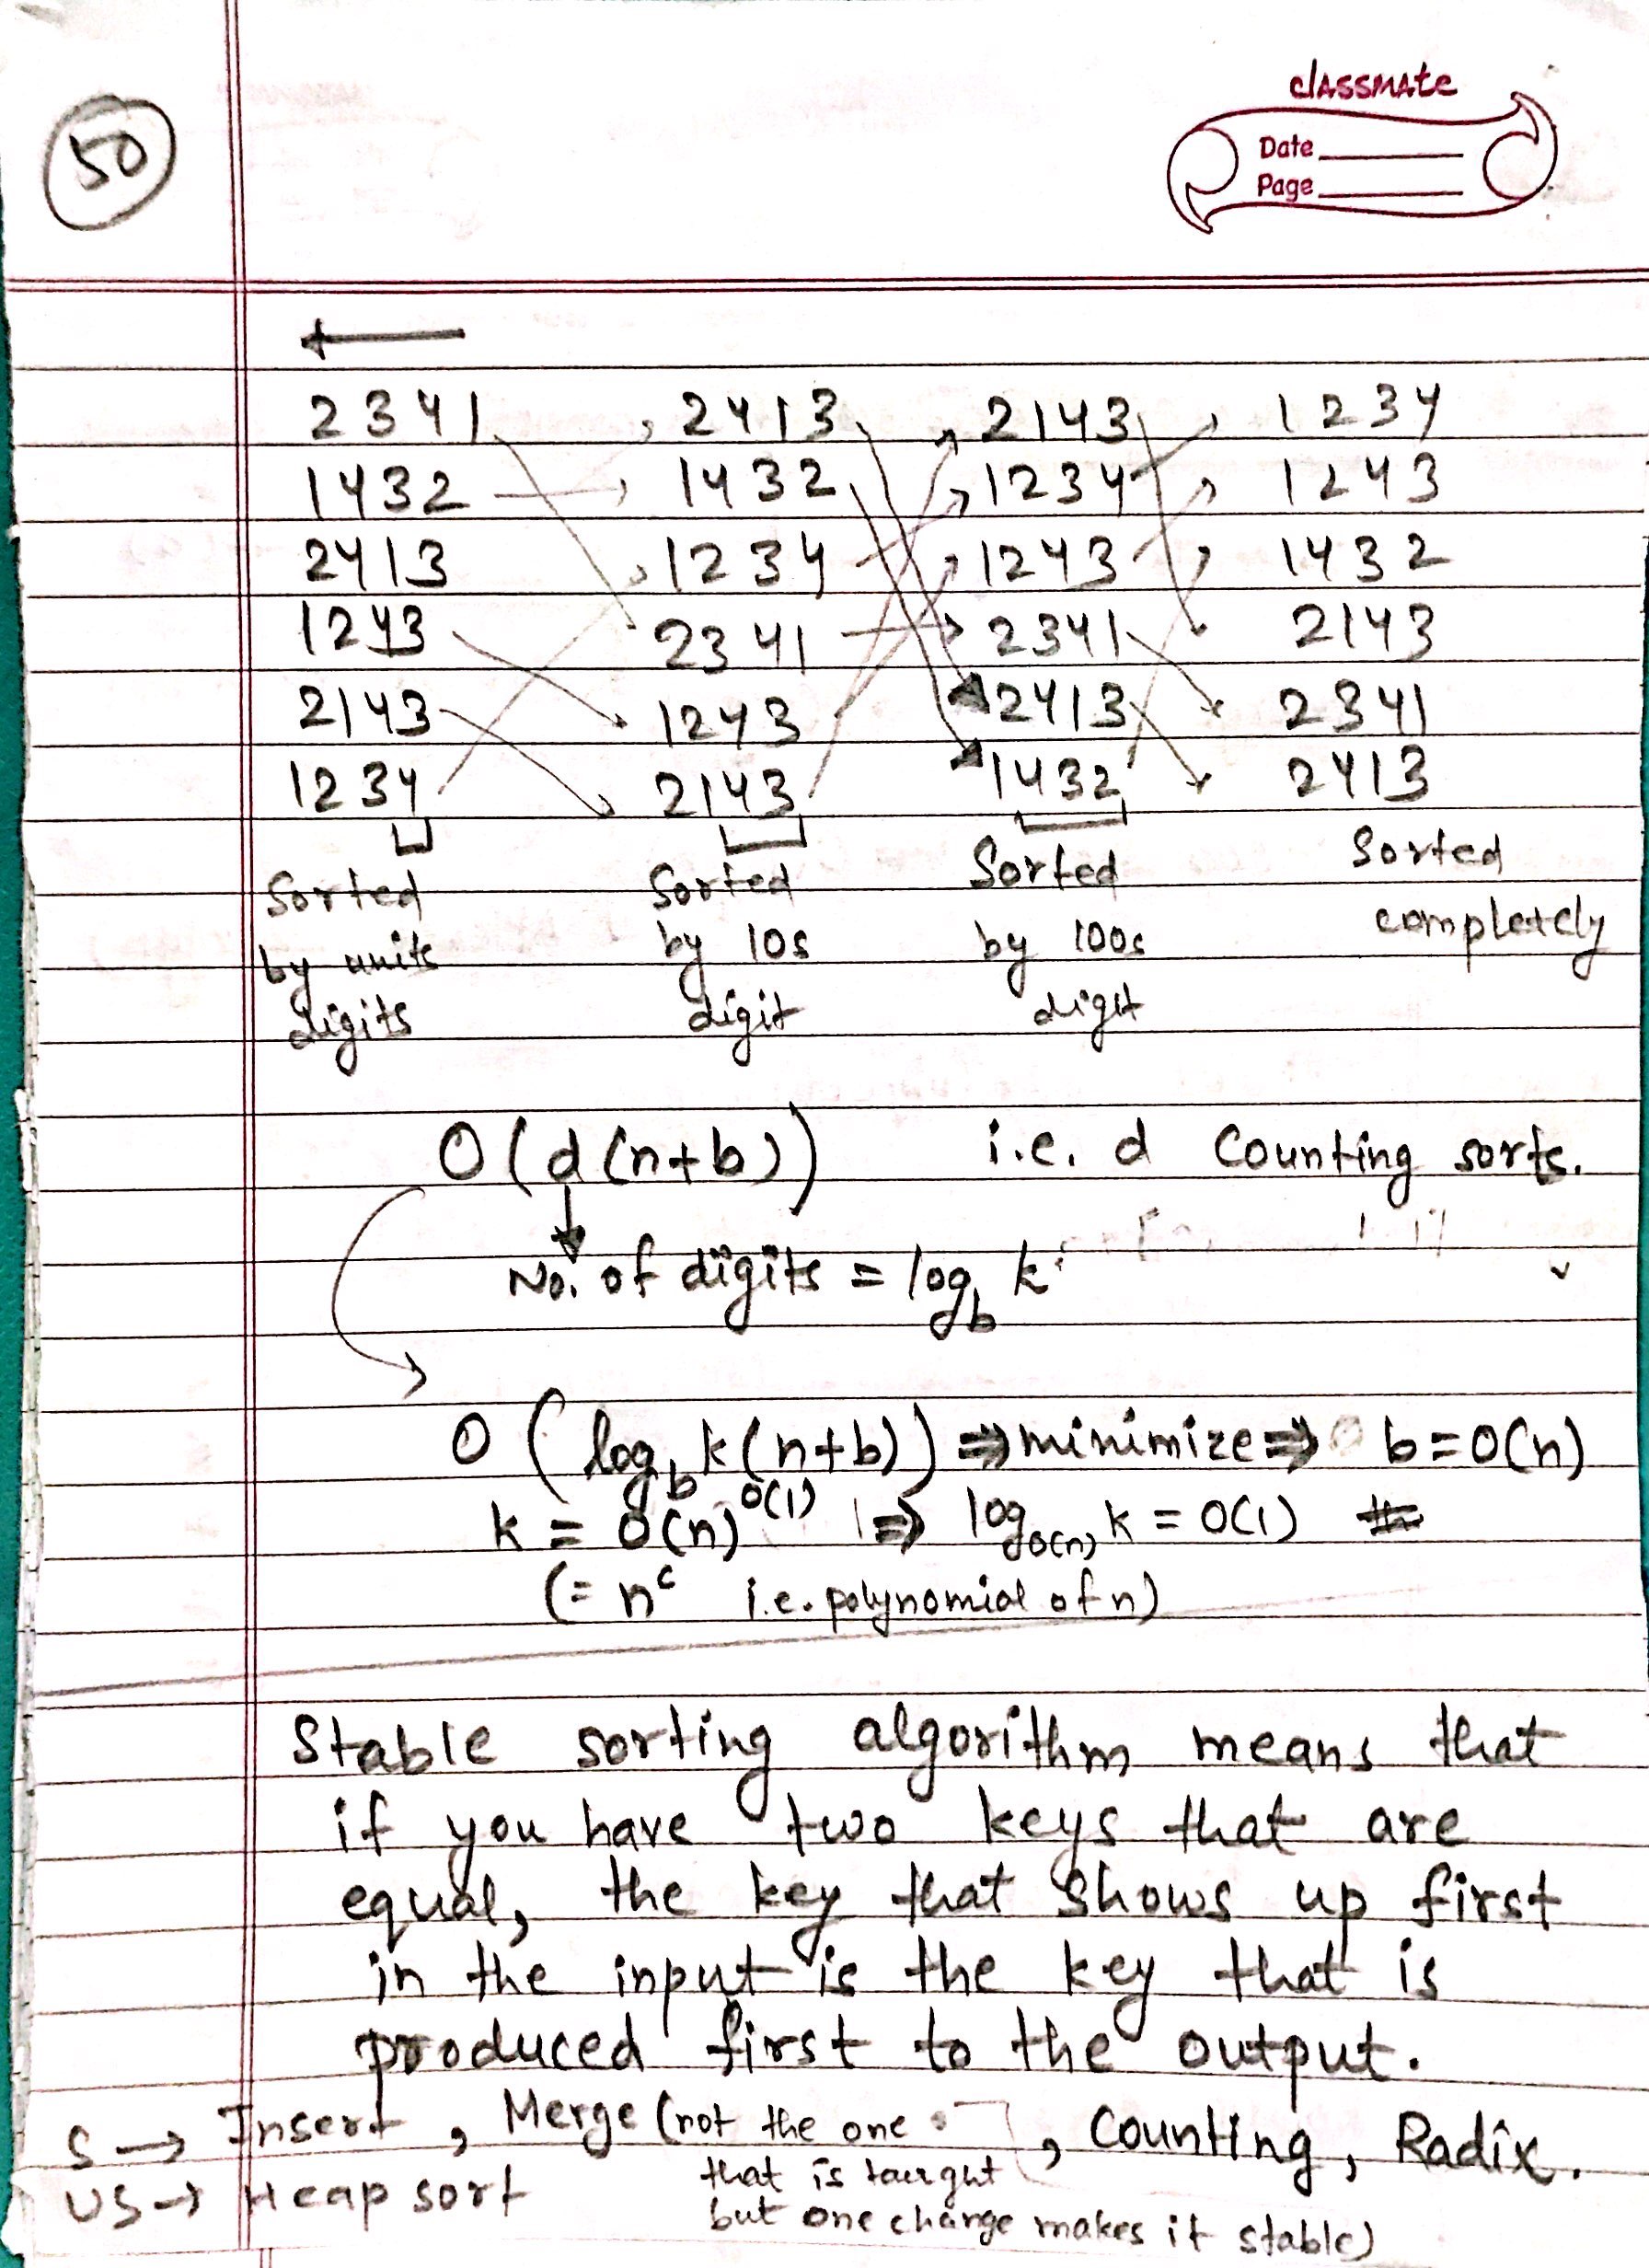 50
classmate
Date
Page
←
2341 2413 2143 1234
1432 1432 1234 1243
2413 1234 1243 1432
1243 2341 2341 2143
2143 1243 2413 2341
1234 2143 1432 2413
Sorted Sorted Sorted Sorted
by units by 10s by 100s completely
digits digit digit
O(d(n+b)) i.e. d Counting sorts.
↓
No. of digits = log_b k
O(log_b k(n+b)) ⇒ minimize ⇒ b=O(n)
k = O(n)^O(1) ⇒ log_O(n) k = O(1)
(= n^c i.e. polynomial of n)
Stable sorting algorithm means that
if you have two keys that are
equal, the key that shows up first
in the input is the key that is
produced first to the output.
S → Insert, Merge (not the one , Counting, Radix.
US → Heap sort that is taught
but one change makes it stable)